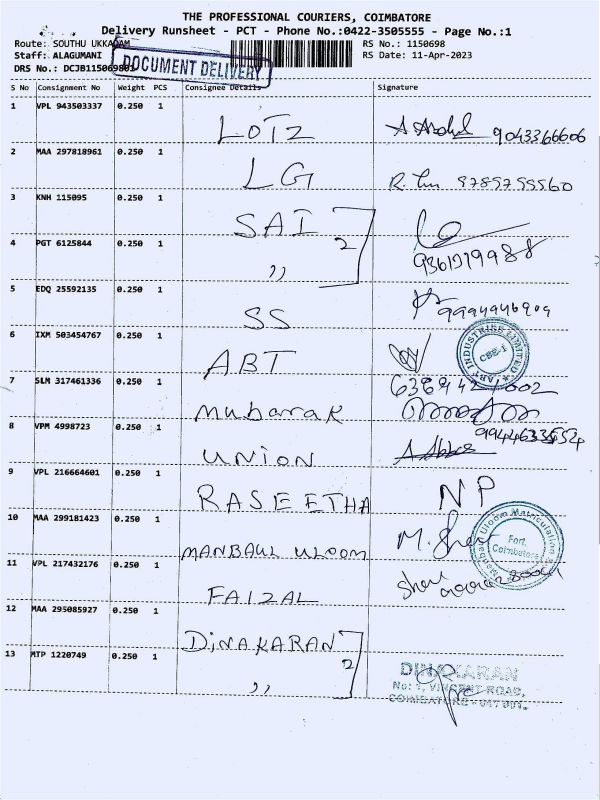 THE PROFESSIONAL COURIERS, COIMBATORE
Delivery Runsheet - PCT - Phone No.:0422-3505555 - Page No.:1
Route: SOUTHU UKKADAM
RS No.: 1150698
Staff: ALAGUMANI
RS Date: 11-Apr-2023
DRS No.: DCJB115069801
DOCUMENT DELIVERY
S No Consignment No Weight PCS Consignee Details Signature
1 VPL 943503337 0.250 1
LOTZ 9043366606
2 MAA 297818961 0.250 1
LG 9789755560
3 KNH 115095 0.250 1
SAI
2
4 PGT 6125844 0.250 1
,,
5 EDQ 25592135 0.250 1
SS
6 IXM 503454767 0.250 1
ABT
ABT INDUSTRIES LIMITED
CBE-1
7 SLM 317461336 0.250 1
mubarak
8 VPM 4998723 0.250 1
UNION A Abbas
9 VPL 216664601 0.250 1
RASEETHA NP
10 MAA 299181423 0.250 1
MANBAUL ULOOM
Manbaul Uloom Matriculation
Fort,
Coimbatore
11 VPL 217432176 0.250 1
FAIZAL
12 MAA 295085927 0.250 1
DINAKARAN
2
13 MTP 1220749 0.250 1
,,
DINAKARAN
No: 1, VINCENT ROAD,
COIMBATORE - 641 001.